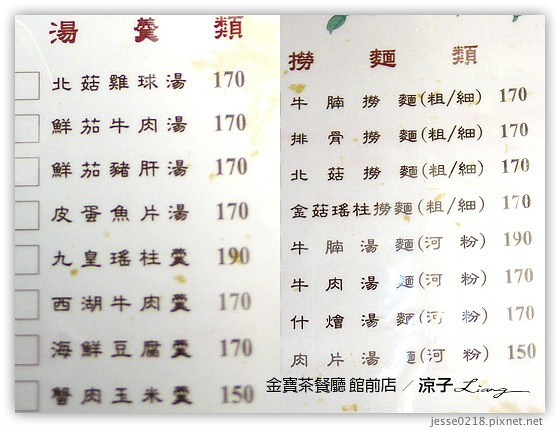 湯羹類
北菇雞球湯 170
鮮茄牛肉湯 170
鮮茄豬肝湯 170
皮蛋魚片湯 170
九皇瑤柱羹 190
西湖牛肉羹 170
海鮮豆腐羹 170
蟹肉玉米羹 150
撈麵類
牛腩撈麵(粗/細) 170
排骨撈麵(粗/細) 170
北菇撈麵(粗/細) 170
金菇瑤柱撈麵(粗/細) 170
牛腩湯麵(河粉) 190
牛肉湯麵(河粉) 170
什燴湯麵(河粉) 170
肉片湯麵(河粉) 150
金寶茶餐廳 館前店 ／涼子 Liang
jesse0218.pixnet.net